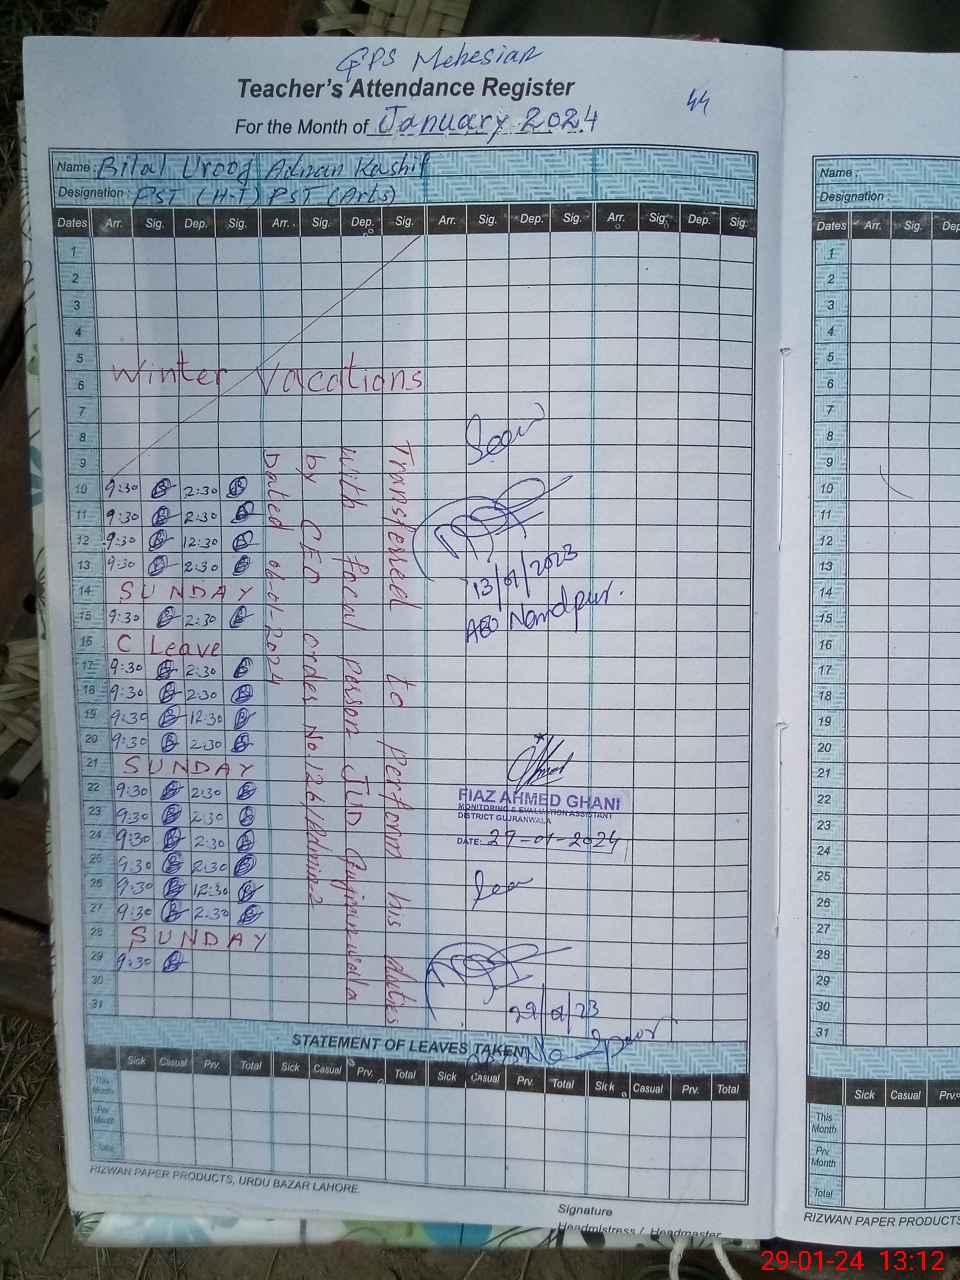 GPS Mehesian
Teacher's Attendance Register
44
For the Month of January 2024
Name: Bilal Urooj Adnan Kashif
Designation: PST (H-T) PST (Arts)
Dates Arr. Sig. Dep. Sig. Arr. Sig. Dep. Sig. Arr. Sig. Dep. Sig. Arr. Sig. Dep. Sig.
1
2
3
4
5
6 Winter Vacations
7
8
9
10 9:30 2:30
11 9:30 2:30
12 9:30 12:30
13 9:30 2:30
14 SUNDAY
15 9:30 2:30
16 C Leave
17 9:30 2:30
18 9:30 2:30
19 9:30 12:30
20 9:30 2:30
21 SUNDAY
22 9:30 2:30
23 9:30 2:30
24 9:30 2:30
25 9:30 2:30
26 9:30 12:30
27 9:30 2:30
28 SUNDAY
29 9:30
30
31
Transferred to Perform his duties
with focal person
by CEO order No.126/Admin-2
Dated 01-2024
Seen
13/01/2023
AEO Nandpur.
FIAZ AHMED GHANI
MONITORING & EVALUATION ASSISTANT
DISTRICT GUJRANWALA
DATE: 29-01-2024
Seen
29/01/23
STATEMENT OF LEAVES TAKEN
Sick Casual Prv. Total Sick Casual Prv. Total Sick Casual Prv. Total Sick Casual Prv. Total
This Month
Prv. Month
Total
RIZWAN PAPER PRODUCTS, URDU BAZAR LAHORE
Signature
Headmistress / Headmaster
Name:
Designation:
Dates Arr. Sig. Dep
1
2
3
4
5
6
7
8
9
10
11
12
13
14
15
16
17
18
19
20
21
22
23
24
25
26
27
28
29
30
31
Sick Casual Prv.
This Month
Prv. Month
Total
RIZWAN PAPER PRODUCTS
29-01-24 13:12